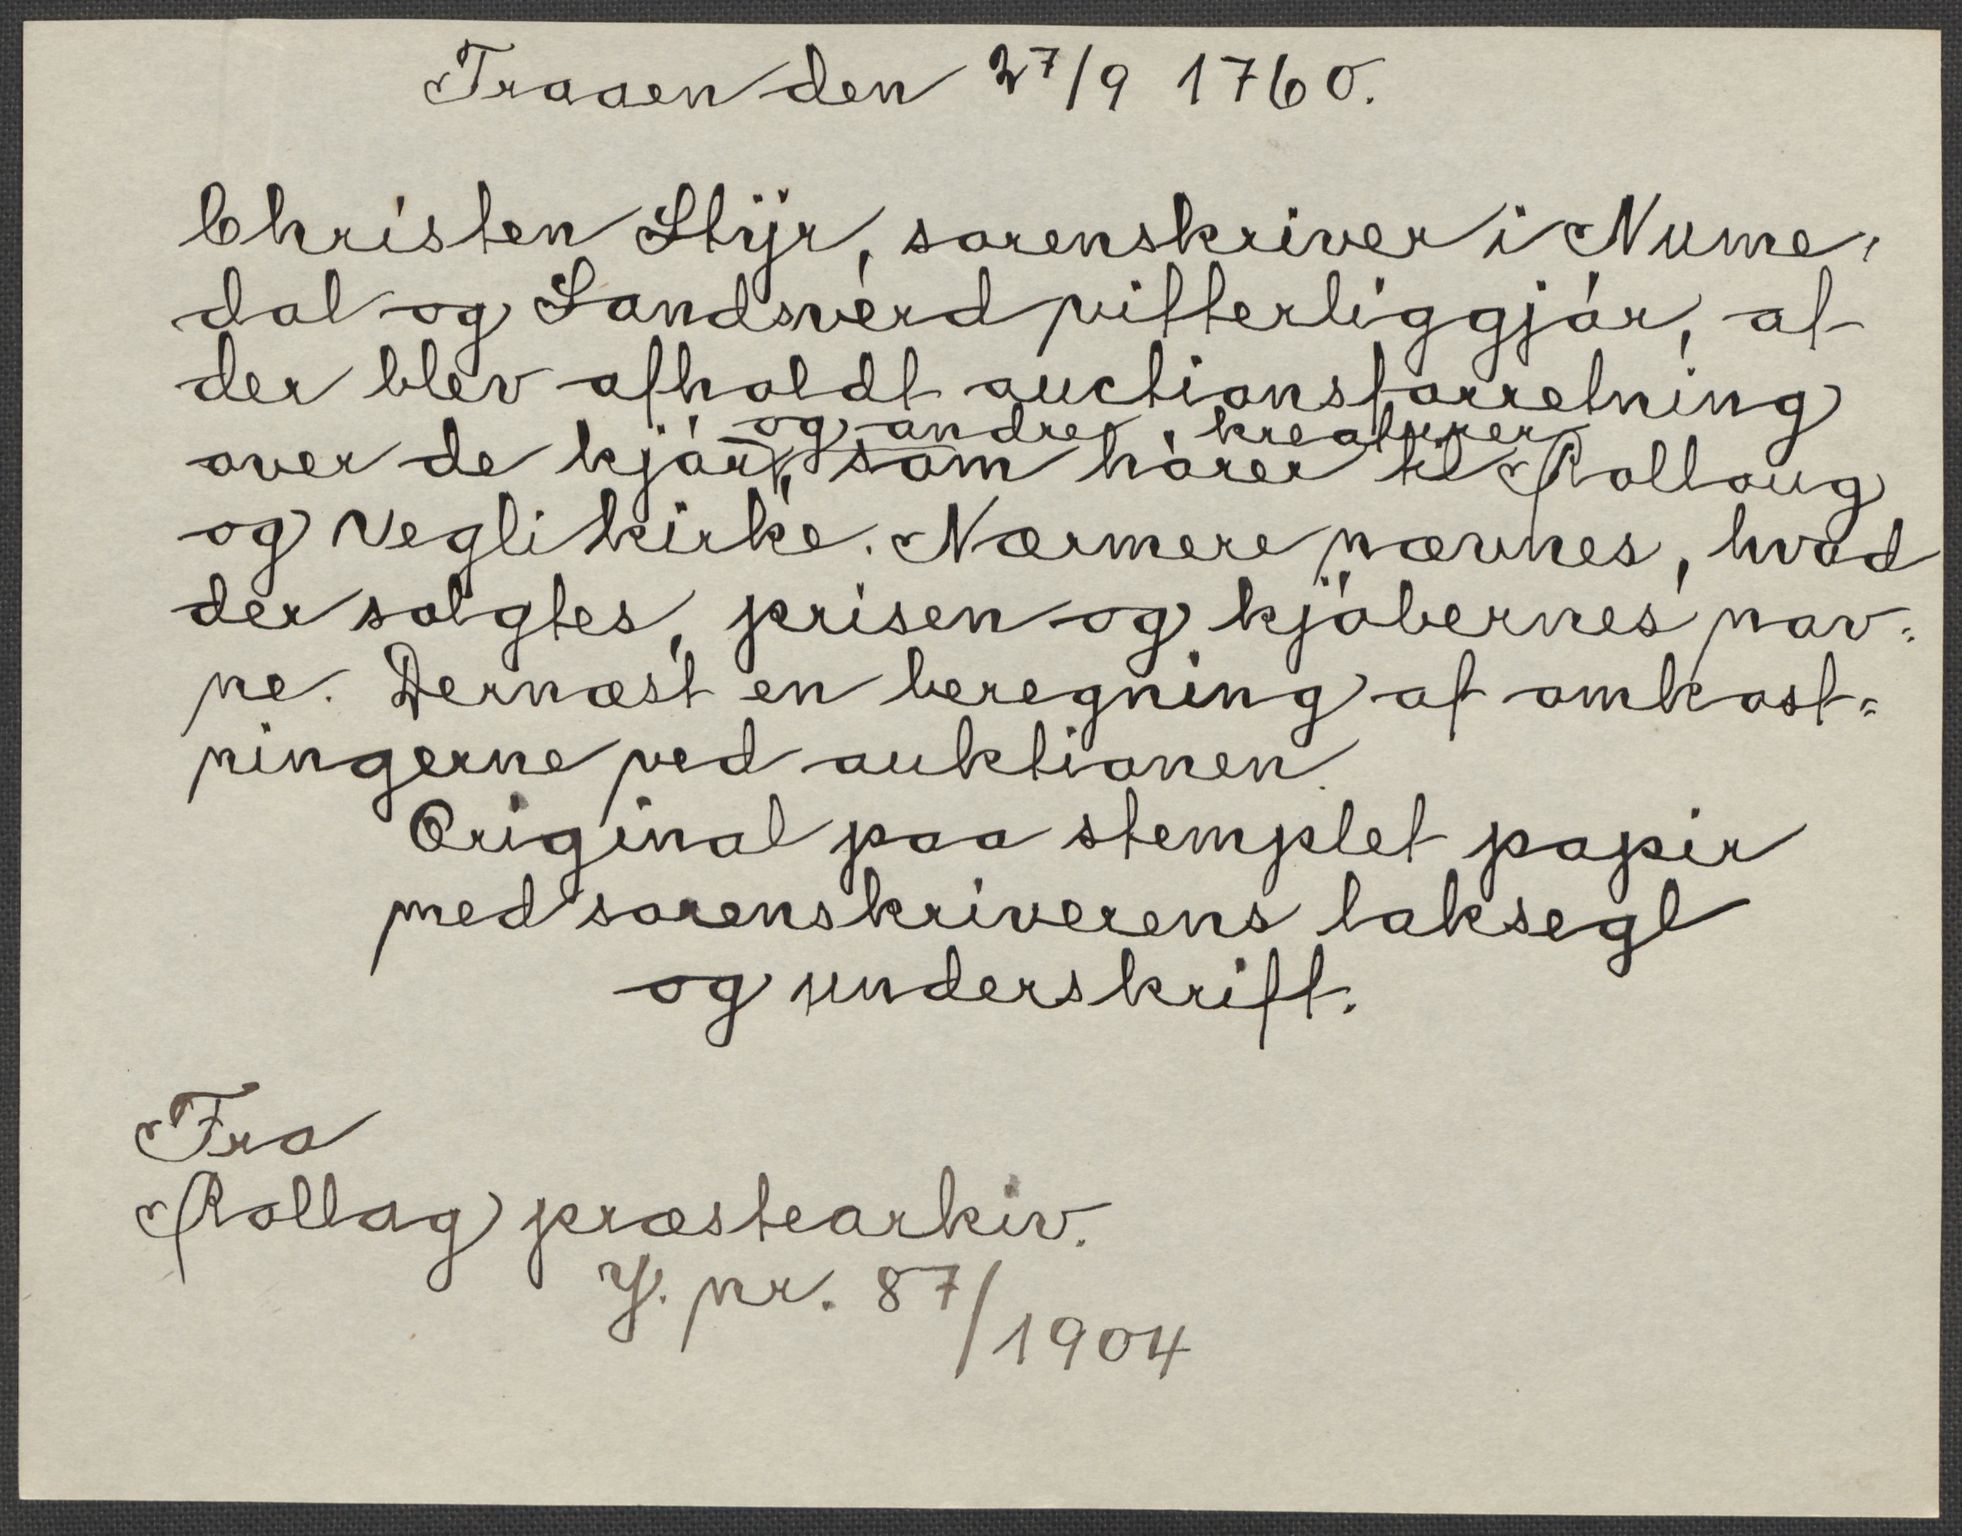 Traaen den 27/9 1760.
Christen Stÿr, sorenskriver i Nume-
dal og Sandsverd vitterliggjör, at
der blev afholdt auctionsforretning
og andre kreaturer
over de kjör, som hörer til Rolloug
og Vegli kirke. Nærmere nævnes, hvad
der solgtes, prisen og kjöbernes nav-
ne. Dernæst en beregning af omkost-
ningerne ved auktionen.
Original paa stemplet papir
med sorenskriverens laksegl
og underskrift.
Fra
Rollag præstearkiv.
J. nr. 87/1904